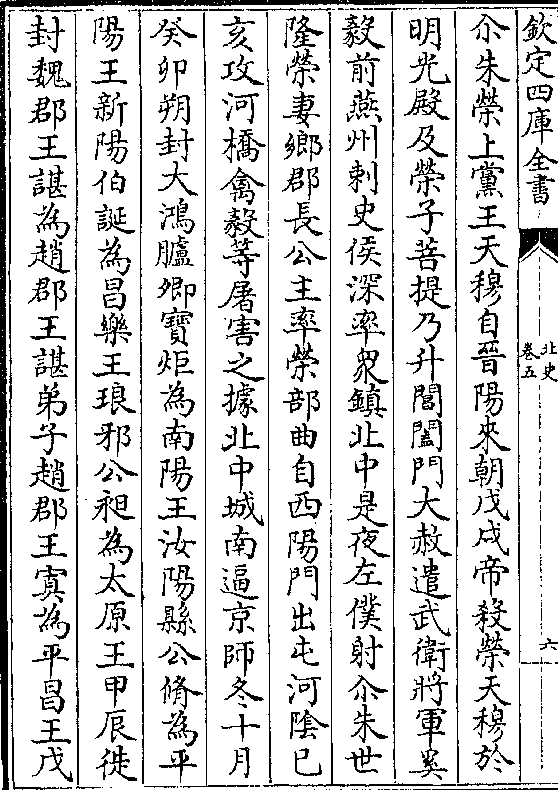 欽定四庫全書
北史
卷五
六
尒朱榮上黨王天穆自晉陽來朝戊戌帝殺榮天穆於
明光殿及榮子菩提乃升閶闔門大赦遣武衛將軍奚
毅前燕州刺史侯深率衆鎮北中是夜左僕射尒朱世
隆榮妻鄉郡長公主率榮部曲自西陽門出屯河陰己
亥攻河橋禽毅等屠害之據北中城南逼京師冬十月
癸卯朔封大鴻臚卿寶炬為南陽王汝陽縣公脩為平
陽王新陽伯誕為昌樂王琅邪公昶為太原王甲辰徙
封魏郡王諶為趙郡王諶弟子趙郡王寘為平昌王戊